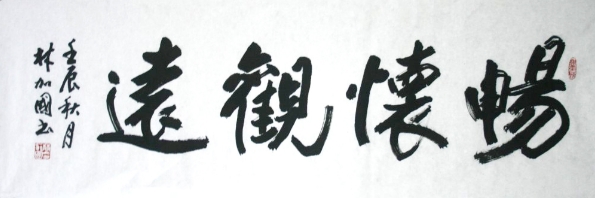 暢懷觀遠
壬辰秋月
林加國书